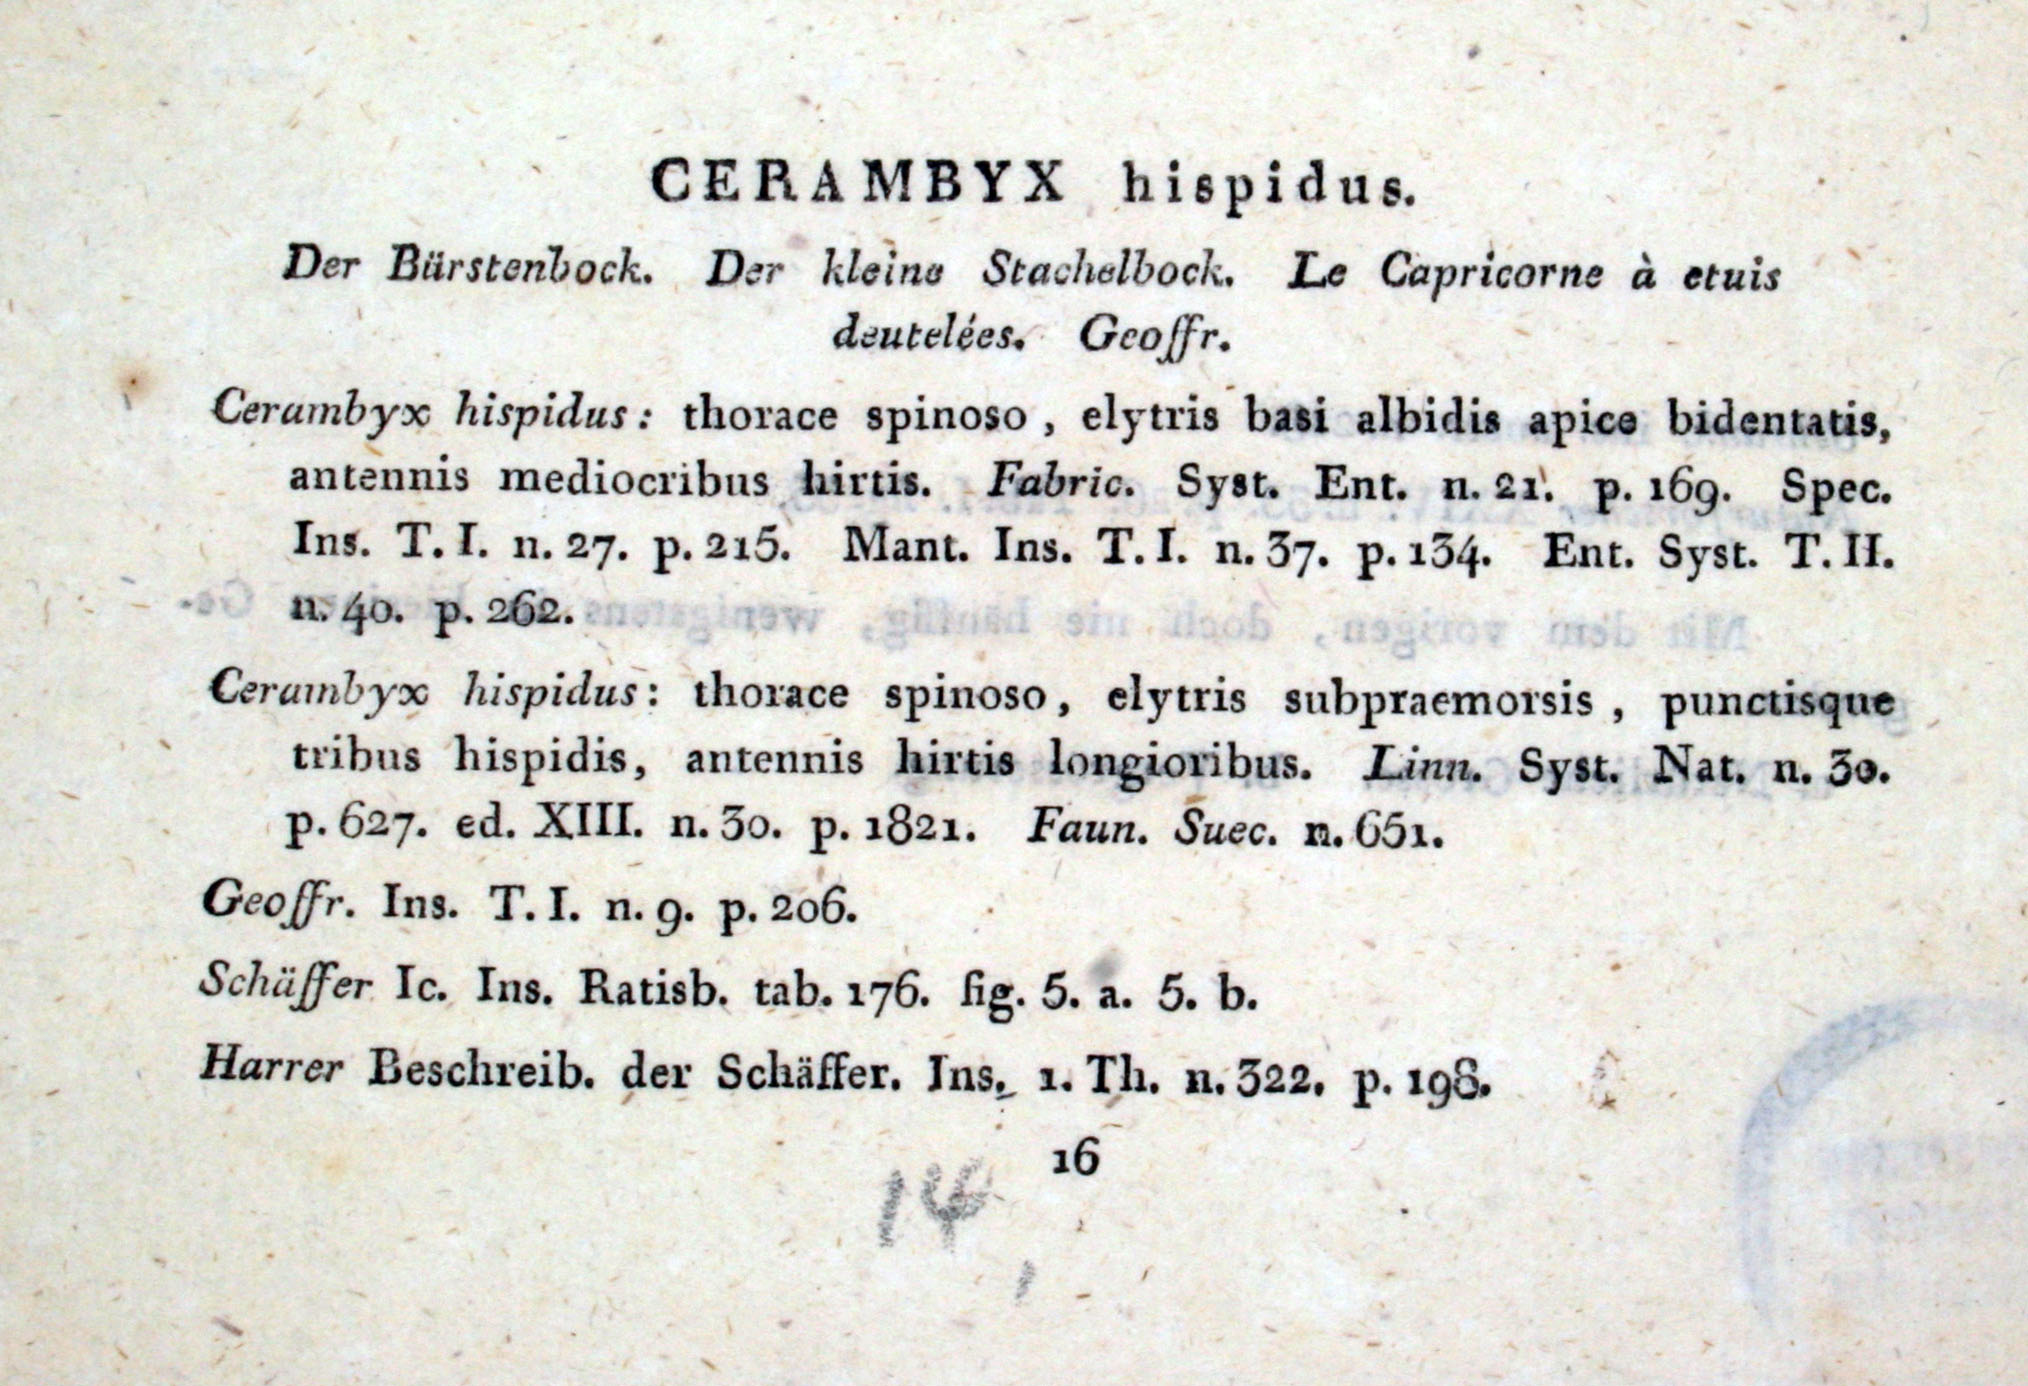 CERAMBYX hispidus.
Der Bürstenbock. Der kleine Stachelbock. Le Capricorne à etuis
deutelées. Geoffr.
Cerambyx hispidus: thorace spinoso, elytris basi albidis apice bidentatis,
antennis mediocribus hirtis. Fabric. Syst. Ent. n. 21. p. 169. Spec.
Ins. T. I. n. 27. p. 215. Mant. Ins. T. I. n. 37. p. 134. Ent. Syst. T. II.
n. 40. p. 262.
Cerambyx hispidus: thorace spinoso, elytris subpraemorsis, punctisque
tribus hispidis, antennis hirtis longioribus. Linn. Syst. Nat. n. 30.
p. 627. ed. XIII. n. 30. p. 1821. Faun. Suec. n. 651.
Geoffr. Ins. T. I. n. 9. p. 206.
Schäffer Ic. Ins. Ratisb. tab. 176. fig. 5. a. 5. b.
Harrer Beschreib. der Schäffer. Ins. 1. Th. n. 322. p. 198.
16
14